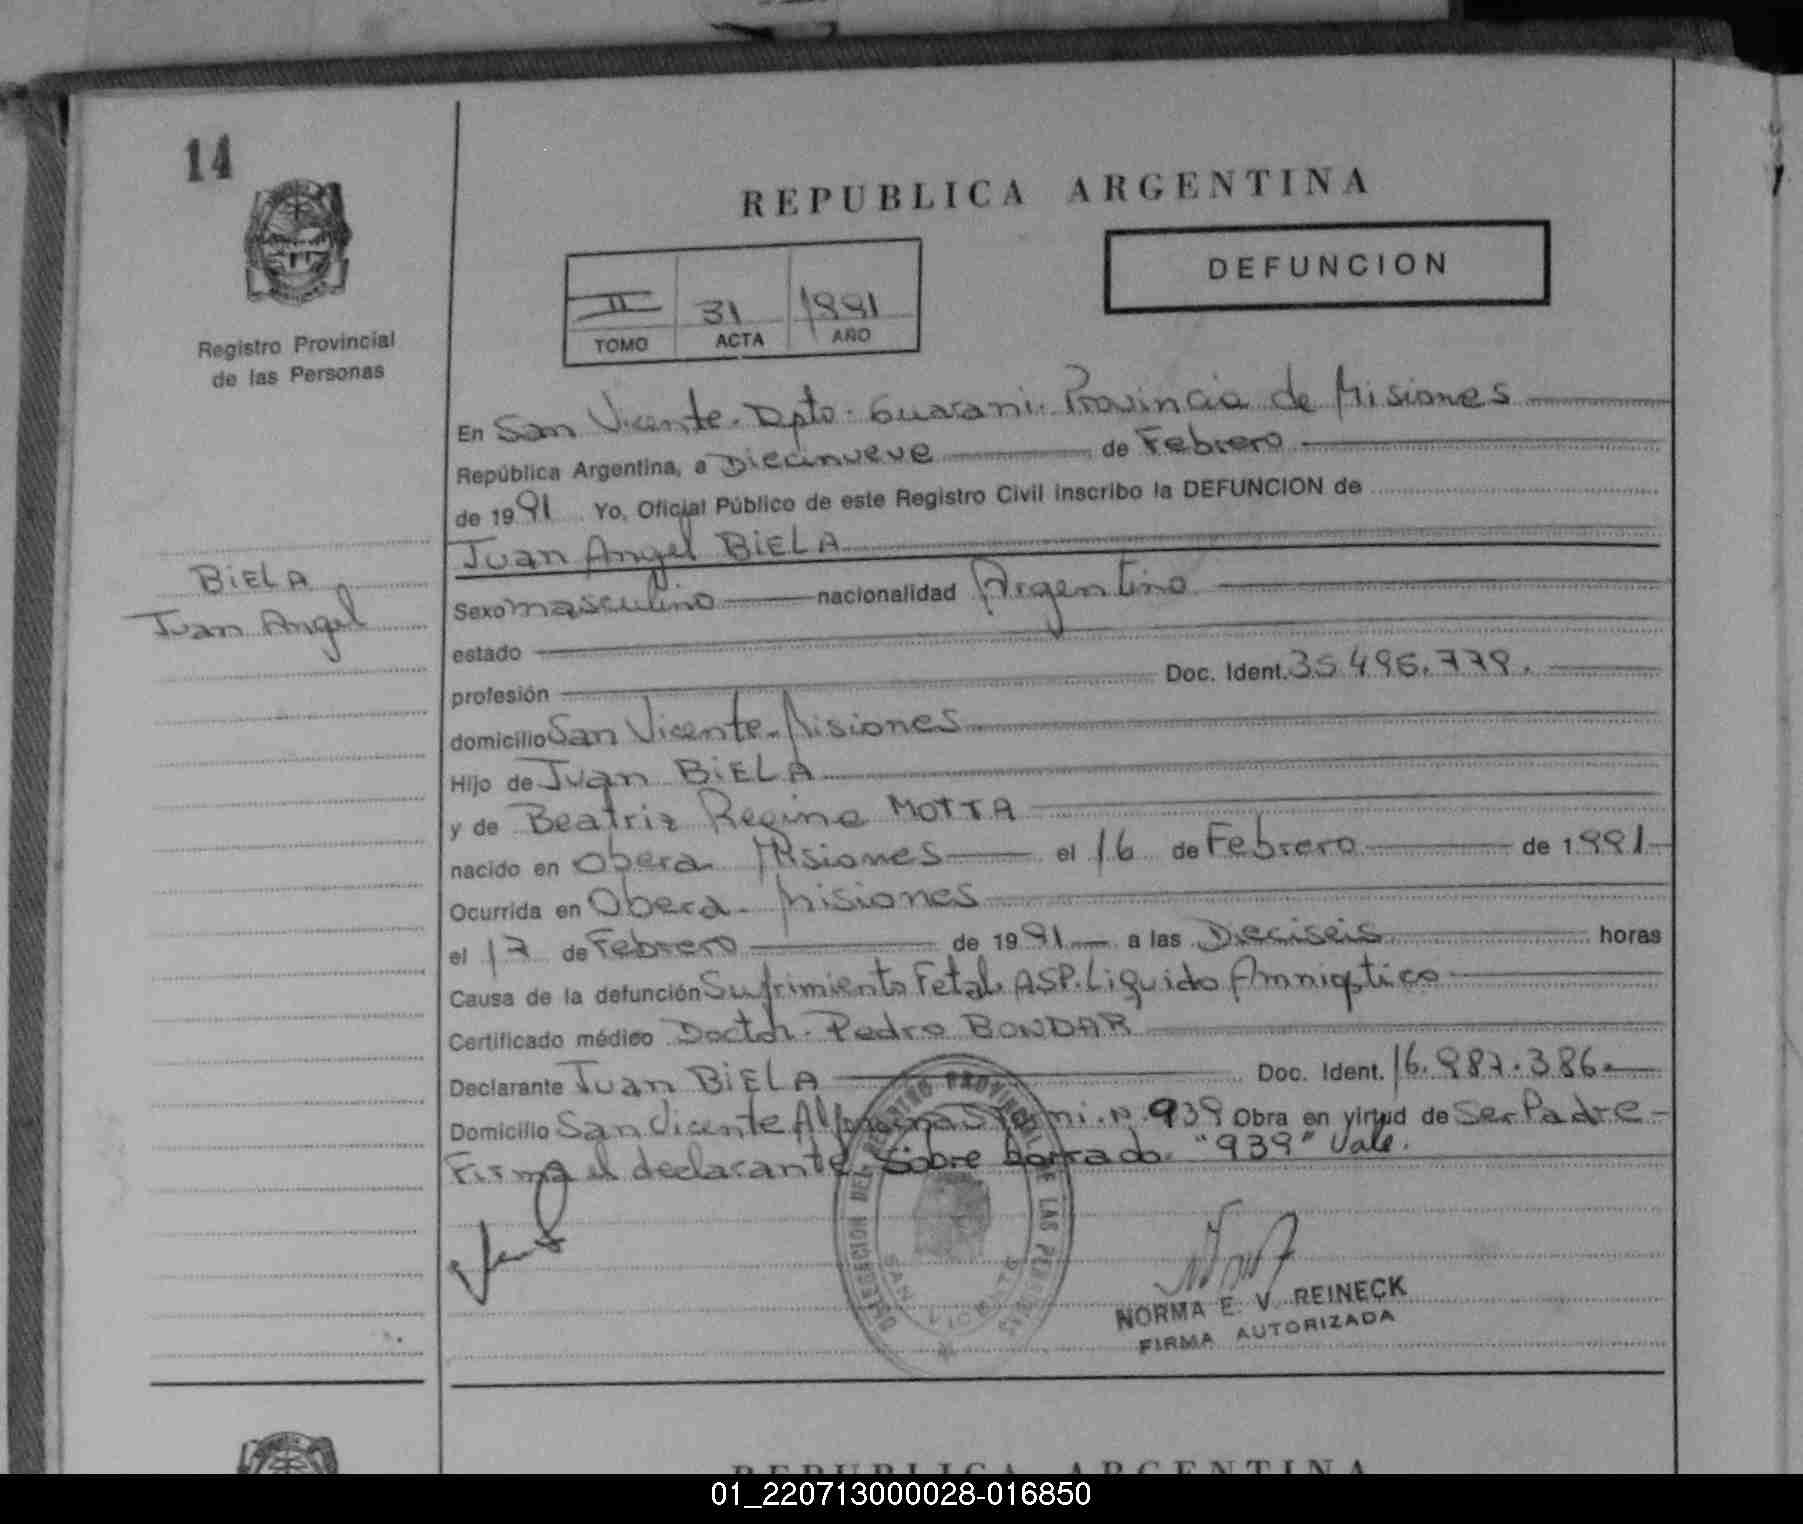 14
REPUBLICA ARGENTINA
DEFUNCION
II 31 1991
TOMO ACTA AÑO
Registro Provincial
de las Personas
En San Vicente. Dpto. Guarani. Provincia de Misiones
República Argentina, a Diecinueve de Febrero
de 1991 Yo, Oficial Público de este Registro Civil inscribo la DEFUNCION de
Juan Angel BIELA
BIELA
Juan Angel
Sexo masculino nacionalidad Argentino
estado
profesión Doc. Ident. 35.496.779.
domicilio San Vicente. Misiones
Hijo de Juan BIELA
y de Beatriz Regina MOTTA
nacido en Obera. Misiones el 16 de Febrero de 1991
Ocurrida en Obera. Misiones
el 17 de Febrero de 1991 a las Dieciseis horas
Causa de la defunción Sufrimiento Fetal. ASP. Liquido Amniotico
Certificado médico Doctor. Pedro BONDAR
Declarante Juan BIELA Doc. Ident. 16.987.386.
Domicilio San Vicente Alfonsina Storni. N. 939 Obra en virtud de Ser Padre
Firma el declarante. Sobre borrado. "939" Vale.
DELEGACION DEL REGISTRO PROVINCIAL DE LAS PERSONAS
SAN VICENTE
NORMA E. V. REINECK
FIRMA AUTORIZADA
REPUBLICA ARGENTINA
01_220713000028-016850